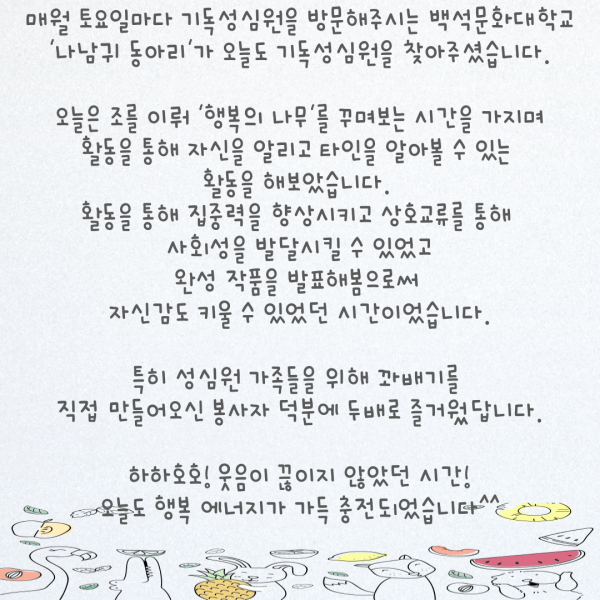 매월 토요일마다 기독성심원을 방문해주시는 백석문화대학교
'나남귀 동아리'가 오늘도 기독성심원을 찾아주셨습니다.
오늘은 조를 이뤄 '행복의 나무'를 꾸며보는 시간을 가지며
활동을 통해 자신을 알리고 타인을 알아볼 수 있는
활동을 해보았습니다.
활동을 통해 집중력을 향상시키고 상호교류를 통해
사회성을 발달시킬 수 있었고
완성 작품을 발표해봄으로써
자신감도 키울 수 있었던 시간이었습니다.
특히 성심원 가족들을 위해 꽈배기를
직접 만들어오신 봉사자 덕분에 두배로 즐거웠답니다.
하하호호! 웃음이 끊이지 않았던 시간!
오늘도 행복 에너지가 가득 충전되었습니다^^